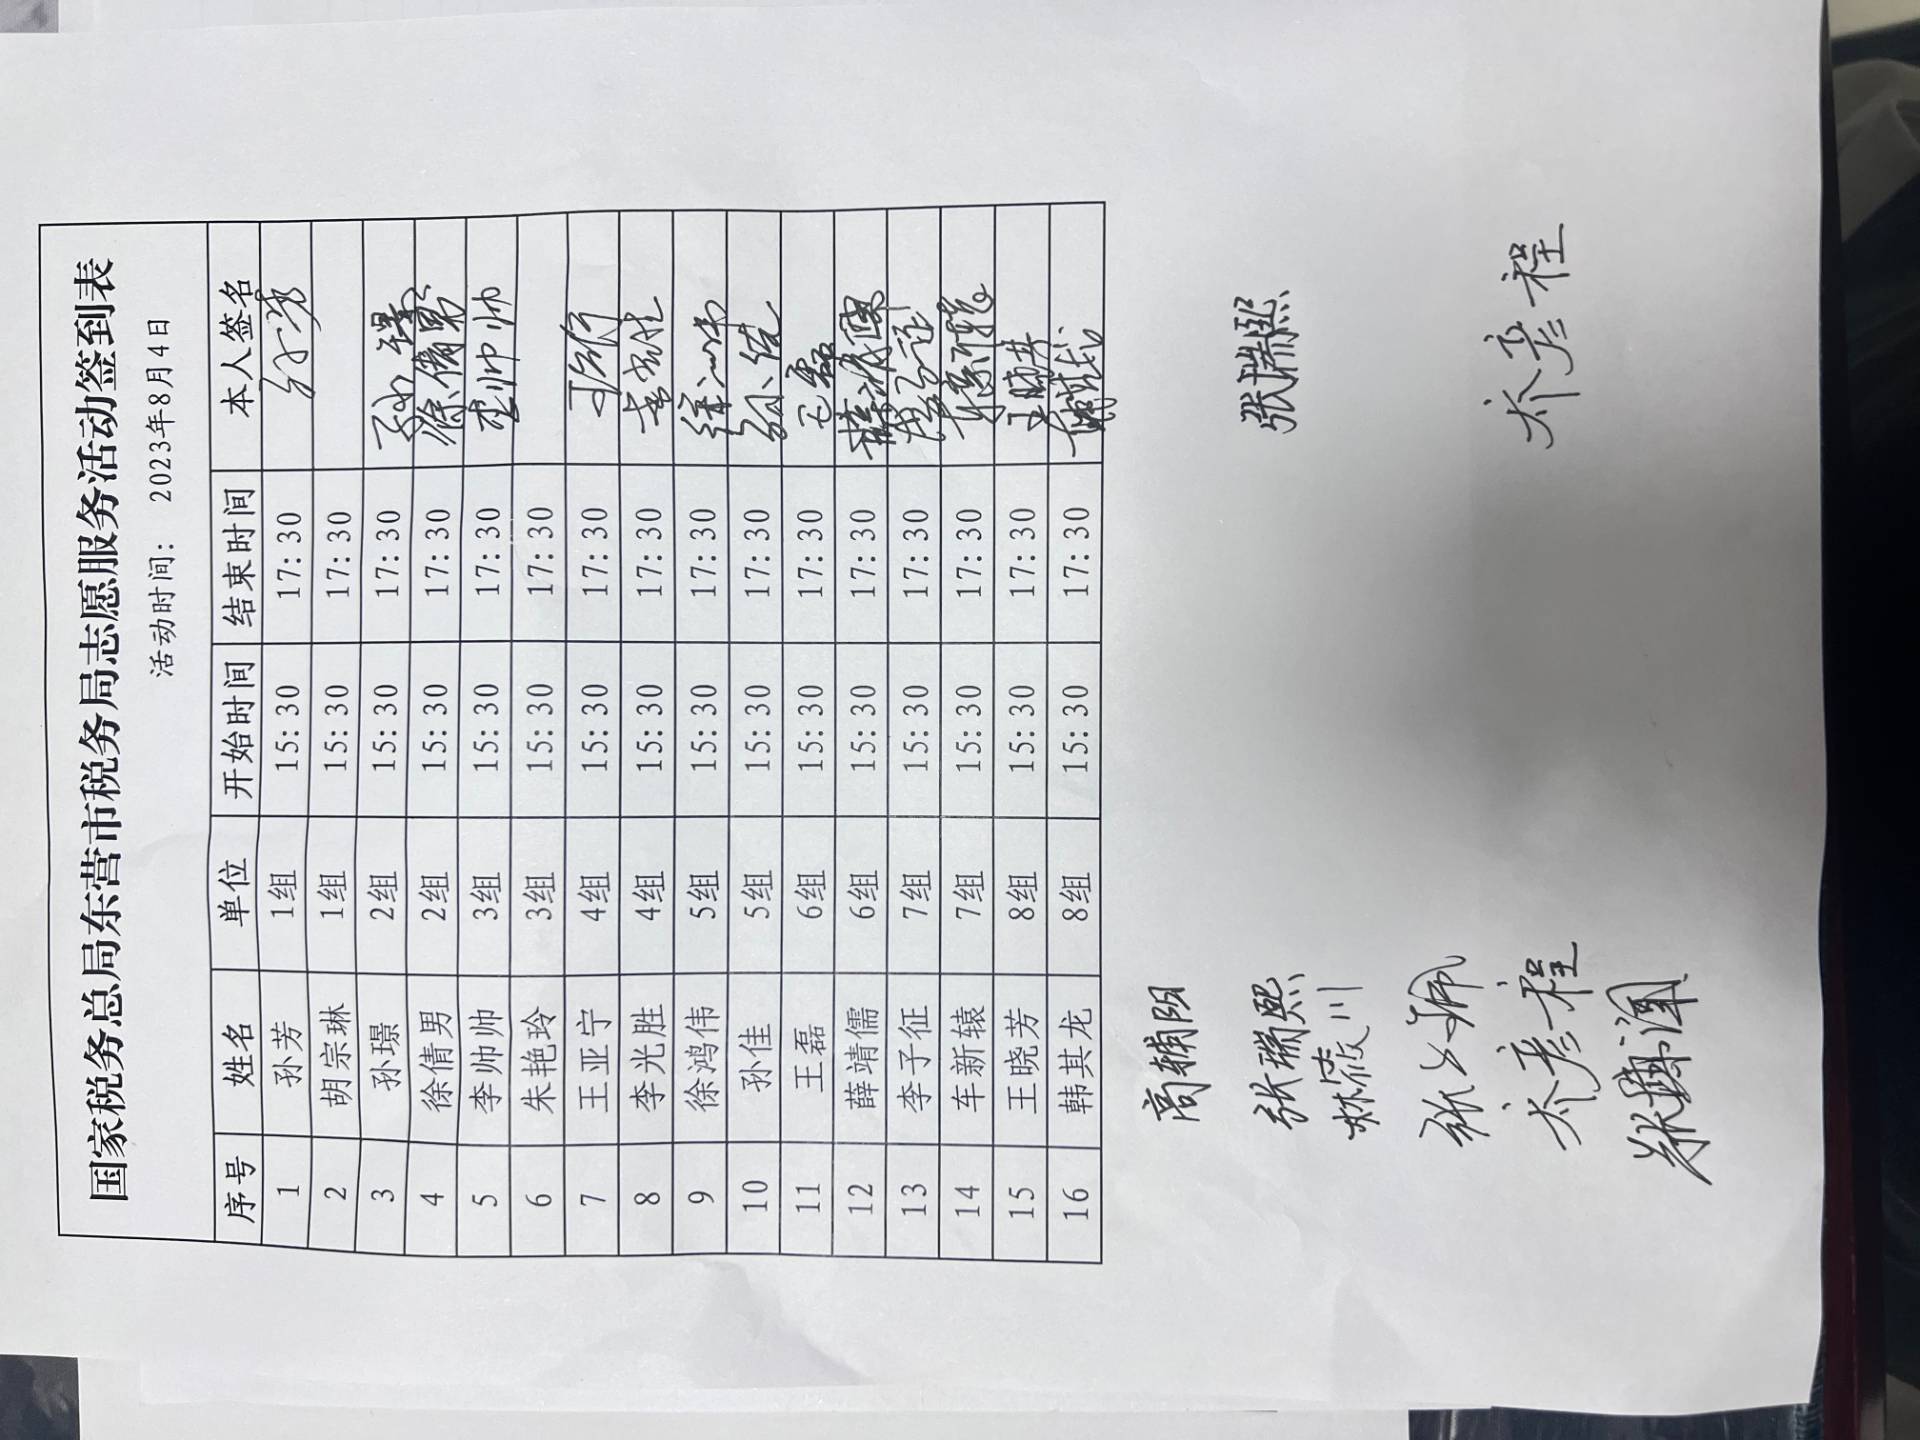 国家税务总局东营市税务局志愿服务活动签到表
活动时间： 2023年8月4日
序号 姓名 单位 开始时间 结束时间 本人签名
1 孙芳 1组 15:30 17:30 孙芳
2 胡宗琳 1组 15:30 17:30
3 孙璟 2组 15:30 17:30 孙璟
4 徐倩男 2组 15:30 17:30 徐倩男
5 李帅帅 3组 15:30 17:30 李帅帅
6 朱艳玲 3组 15:30 17:30
7 王亚宁 4组 15:30 17:30
8 李光胜 4组 15:30 17:30 李光胜
9 徐鸿伟 5组 15:30 17:30 徐鸿伟
10 孙佳 5组 15:30 17:30 孙佳
11 王磊 6组 15:30 17:30 王磊
12 薛靖儒 6组 15:30 17:30 薛靖儒
13 李子征 7组 15:30 17:30 李子征
14 车新辕 7组 15:30 17:30 车新辕
15 王晓芳 8组 15:30 17:30 王晓芳
16 韩其龙 8组 15:30 17:30 韩其龙
高辅阳
张瑞熙 张瑞熙
林筱川
亓彦程 亓彦程